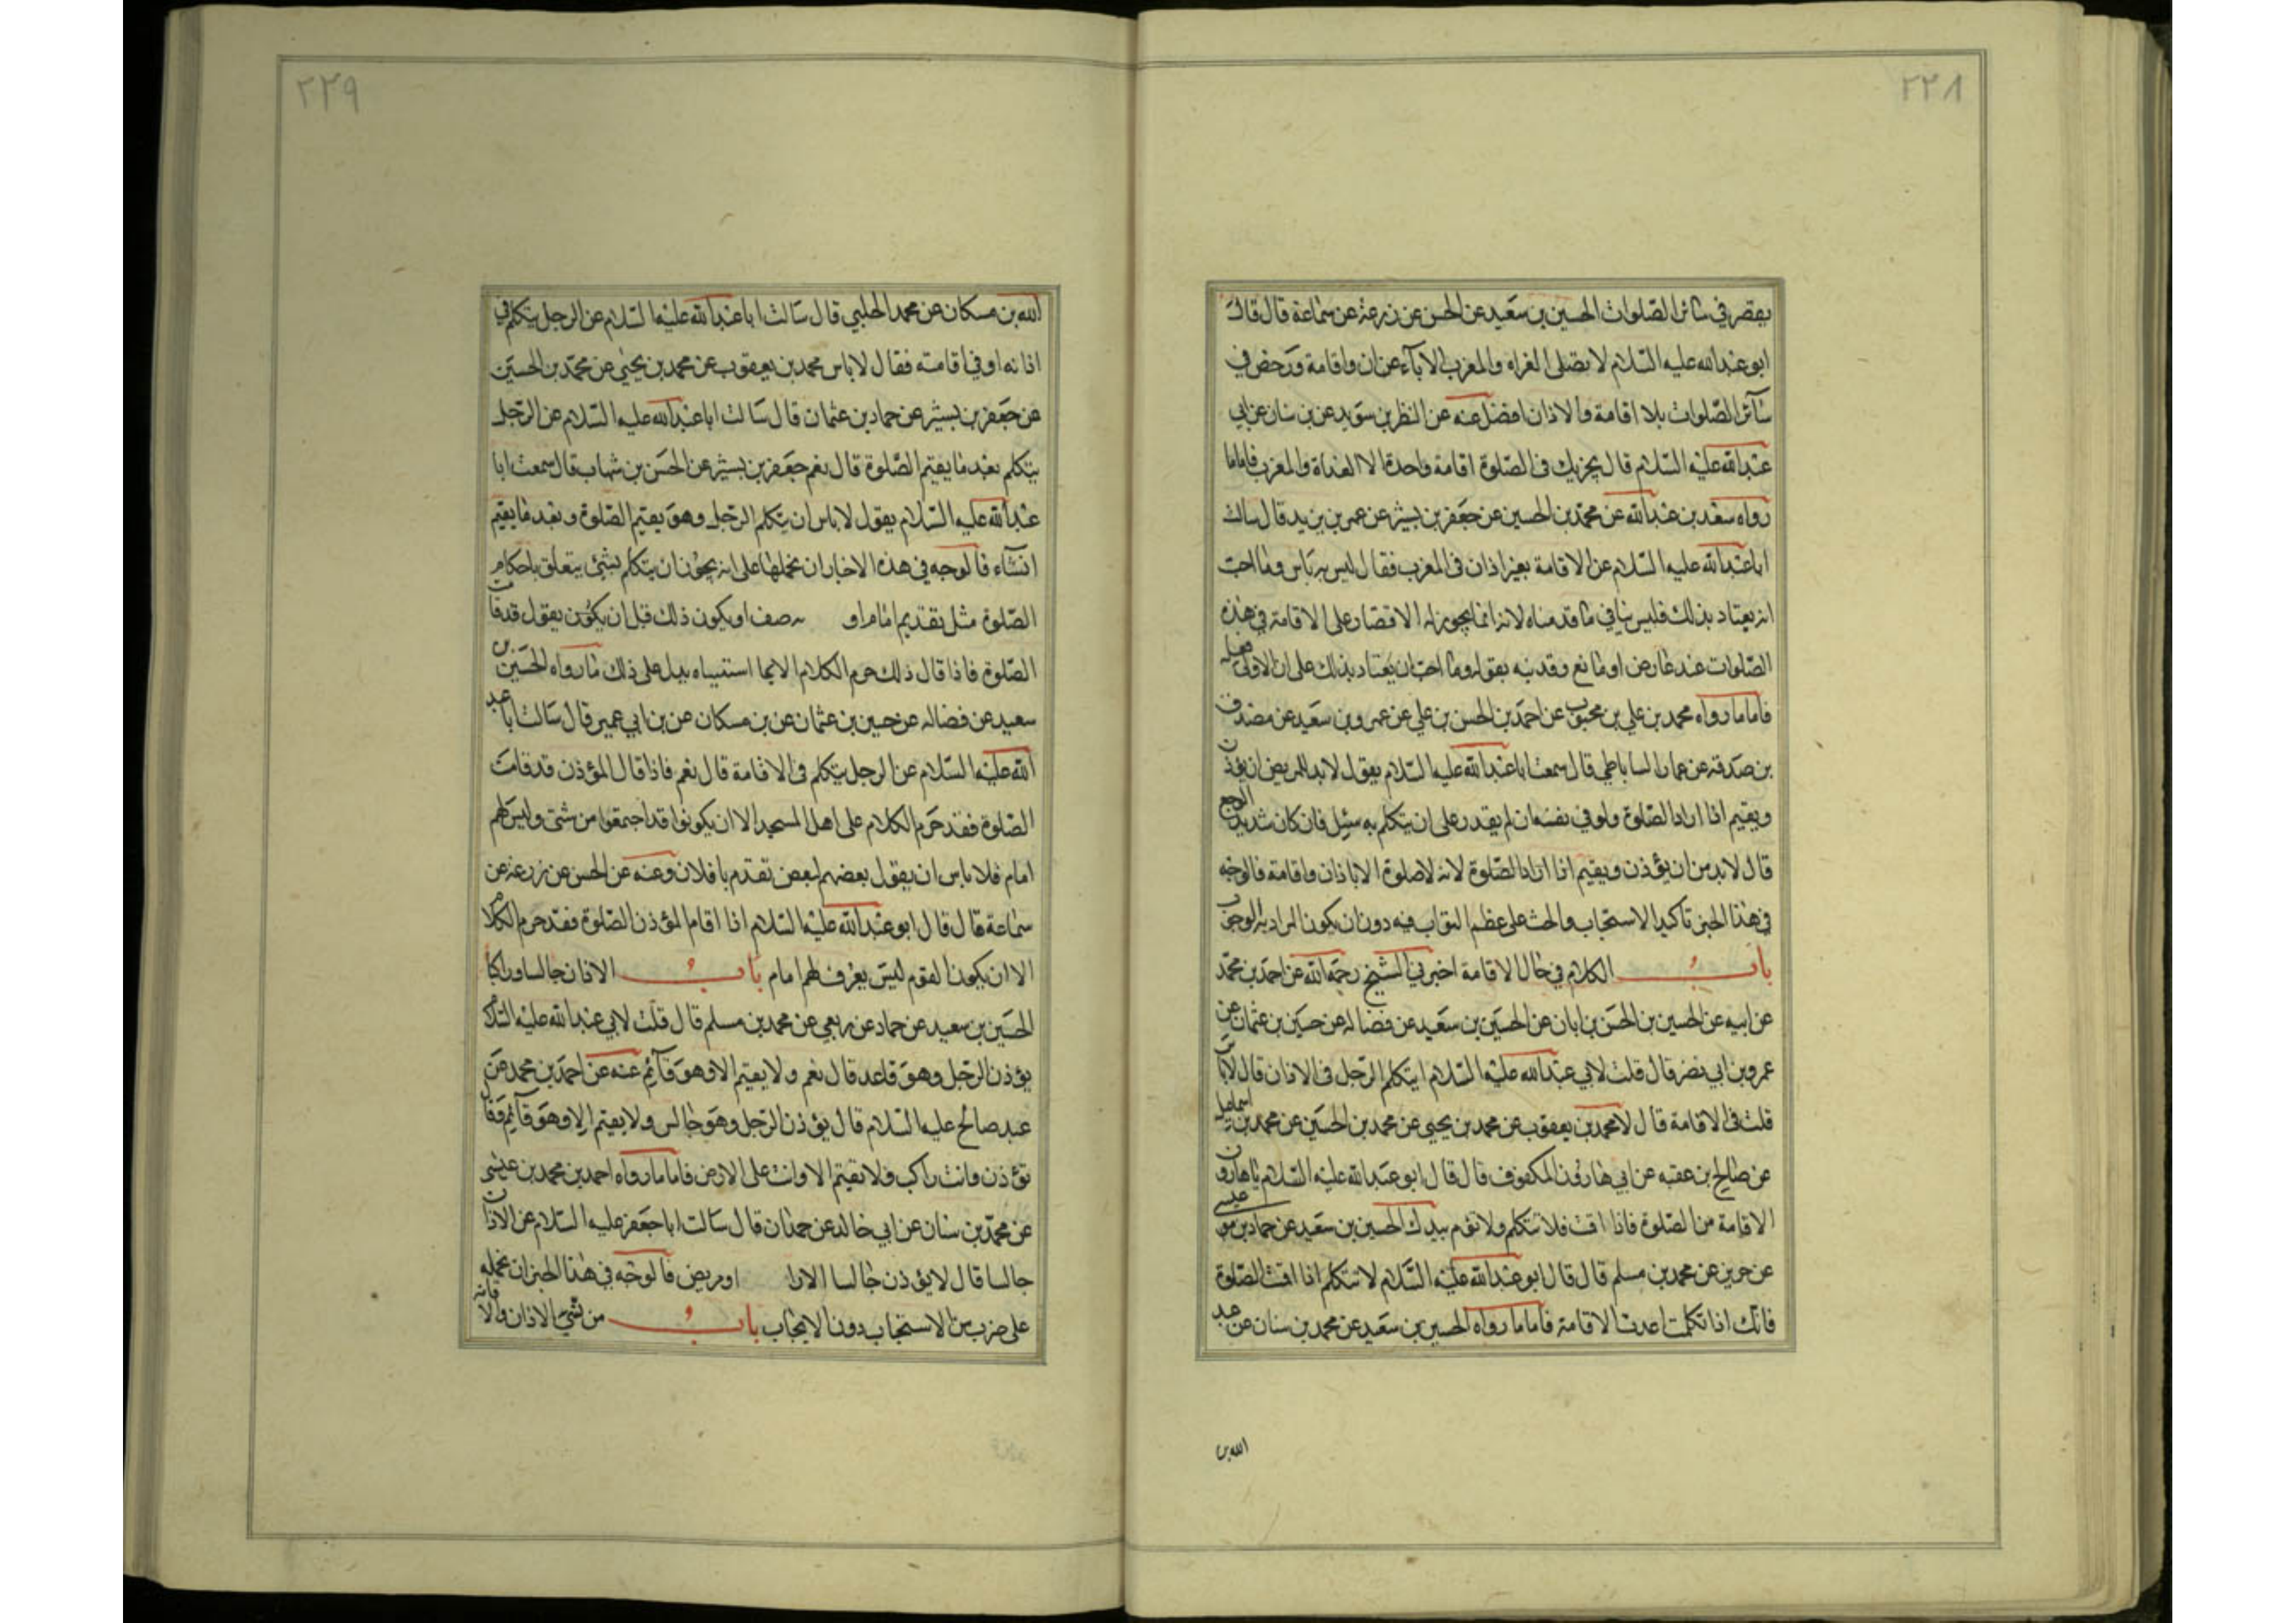 ٢٢٨
يقصر في سائر الصلوات الحسين بن سعيد عن الحسن عن زرعة عن سماعة قال قال
ابو عبدالله عليه السلام لا تصلى الغداه والمغرب الا باذان واقامة ورخص في
سائر الصلوات بلا اقامة والاذان افضل عنه عن النظر بن سويد عن بن سنان عن ابي
عبدالله عليه السلام قال يجزيك في الصلوة اقامة واحدة الا الغداة والمغرب فاما ما
رواه سعد بن عبدالله عن محمد بن الحسين عن جعفر بن بشير عن عمر بن يزيد قال سالت
ابا عبدالله عليه السلام عن الاقامة بغير اذان في المغرب فقال ليس به باس وما احب
انه يعتاد بذلك فليس ينافي ما قدمناه لانه انما يجوز له الاقتصار على الاقامة في هذه
الصلوات عند عارض او مانع وقد نبه بقوله وما احب ان يعتاد بذلك على ان الاولى فعله
فاما ما رواه محمد بن علي بن محبوب عن احمد بن الحسن بن علي عن عمرو بن سعيد عن مصدق
بن صدقه عن عمار الساباطي قال سمعت ابا عبدالله عليه السلام يقول لابد للمريض ان يؤذن
ويقيم اذا اراد الصلوة ولو في نفسه ان لم يقدر على ان يتكلم به سئل فان كان شديد الوجع
قال لابد من ان يؤذن ويقيم اذا اراد الصلوة لانه لا صلوة الا باذان واقامة فالوجه
في هذا الخبر تاكيد الاستحباب والحث على عظم الثواب فيه دون ان يكون المراد به الوجوب
باب الكلام في حال الاقامة اخبرني الشيخ رحمه الله عن احمد بن محمد
عن ابيه عن الحسين بن الحسن بن ابان عن الحسين بن سعيد عن فضاله عن حسين بن عثمان عن
عمرو بن ابي نصر قال قلت لابي عبدالله عليه السلام ايتكلم الرجل في الاذان قال لا باس
قلت في الاقامة قال لا محمد بن يعقوب عن محمد بن يحيى عن محمد بن الحسين عن محمد بن اسماعيل
عن صالح بن عقبه عن ابي هارون المكفوف قال قال ابو عبدالله عليه السلام يا هارون
الاقامة من الصلوة فاذا اقمت فلا تتكلم ولا تؤم بيدك الحسين بن سعيد عن حماد بن عيسى
عن حريز عن محمد بن مسلم قال قال ابو عبدالله عليه السلام لا تتكلم اذا اقمت الصلوة
فانك اذا تكلمت اعدت الاقامة فاما ما رواه الحسين بن سعيد عن محمد بن سنان عن عبد
الله بن
٢٢٩
الله بن مسكان عن محمد الحلبي قال سالت ابا عبدالله عليه السلام عن الرجل يتكلم في
اذانه او في اقامته فقال لا باس محمد بن يعقوب عن محمد بن يحيى عن محمد بن الحسين
عن جعفر بن بشير عن حماد بن عثمان قال سالت ابا عبدالله عليه السلام عن الرجل
يتكلم بعد ما يقيم الصلوة قال نعم جعفر بن بشير عن الحسن بن شهاب قال سمعت ابا
عبدالله عليه السلام يقول لا باس ان يتكلم الرجل وهو يقيم الصلوة وبعد ما يقيم
ان شاء فالوجه في هذه الاخبار ان نحملها على انه يجوز ان يتكلم بشئ يتعلق باحكام
الصلوة مثل تقديم امام او صف او يكون ذلك قبل ان يكون يقول قد قامت
الصلوة فاذا قال ذلك حرم الكلام الا بما استثنيناه يدل على ذلك ما رواه الحسين بن
سعيد عن فضاله عن حسين بن عثمان عن بن مسكان عن بن ابي عمير قال سالت ابا عبد
الله عليه السلام عن الرجل يتكلم في الاقامة قال نعم فاذا قال المؤذن قد قامت
الصلوة فقد حرم الكلام على اهل المسجد الا ان يكونوا قد اجتمعوا من شتى وليس لهم
امام فلا باس ان يقول بعضهم لبعض تقدم يا فلان وعنه عن الحسن عن زرعة عن
سماعة قال قال ابو عبدالله عليه السلام اذا اقام المؤذن الصلوة فقد حرم الكلام
الا ان يكون القوم ليس يعرف لهم امام باب الاذان جالسا وراكبا
الحسين بن سعيد عن حماد عن ربعي عن محمد بن مسلم قال قلت لابي عبدالله عليه السلام
يؤذن الرجل وهو قاعد قال نعم ولا يقيم الا وهو قائم عنه عن احمد بن محمد عن
عبد صالح عليه السلام قال يؤذن الرجل وهو جالس ولا يقيم الا وهو قائم وقال
تؤذن وانت راكب ولا تقيم الا وانت على الارض فاما ما رواه احمد بن محمد بن عيسى
عن محمد بن سنان عن ابي خالد عن حمران قال سالت ابا جعفر عليه السلام عن الاذان
جالسا قال لا يؤذن جالسا الا را او مريض فالوجه في هذا الخبر ان نحمله
على ضرب من الاستحباب دون الايجاب باب من نسي الاذان والاقامة